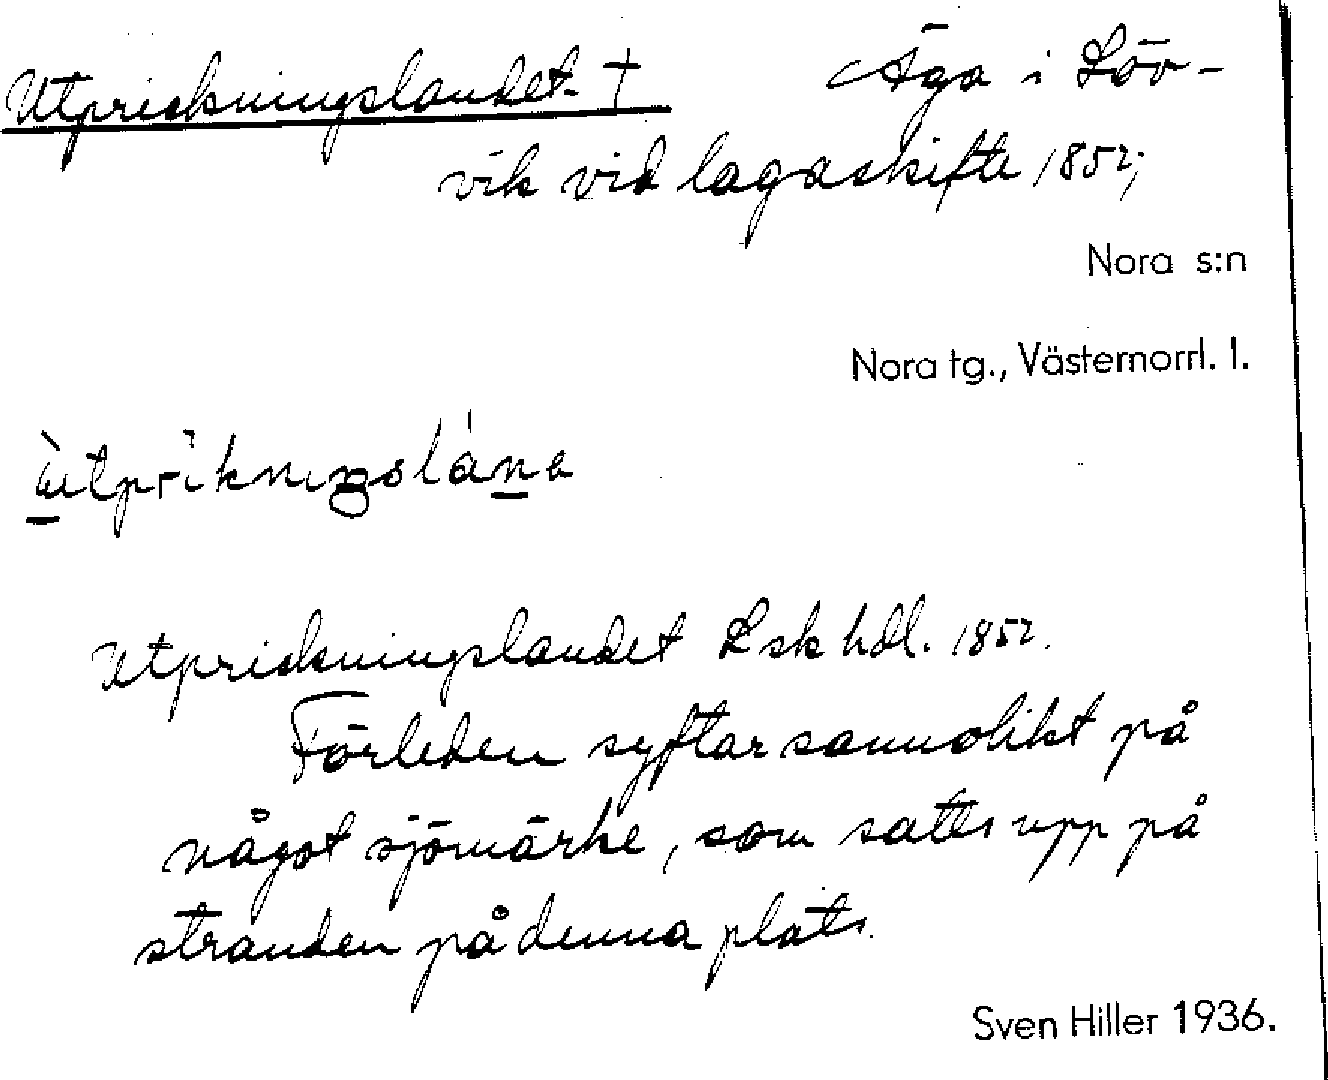 Utprickningslandet † Äga i Löv-
vik vid lagaskifte 1852;
Nora s:n
Nora tg., Västernorrl. l.
Utprickningslandet Lsk hdl. 1852.
Förleden syftar sannolikt på
något sjömärke, som satts upp på
stranden på denna plats.
Sven Hiller 1936.